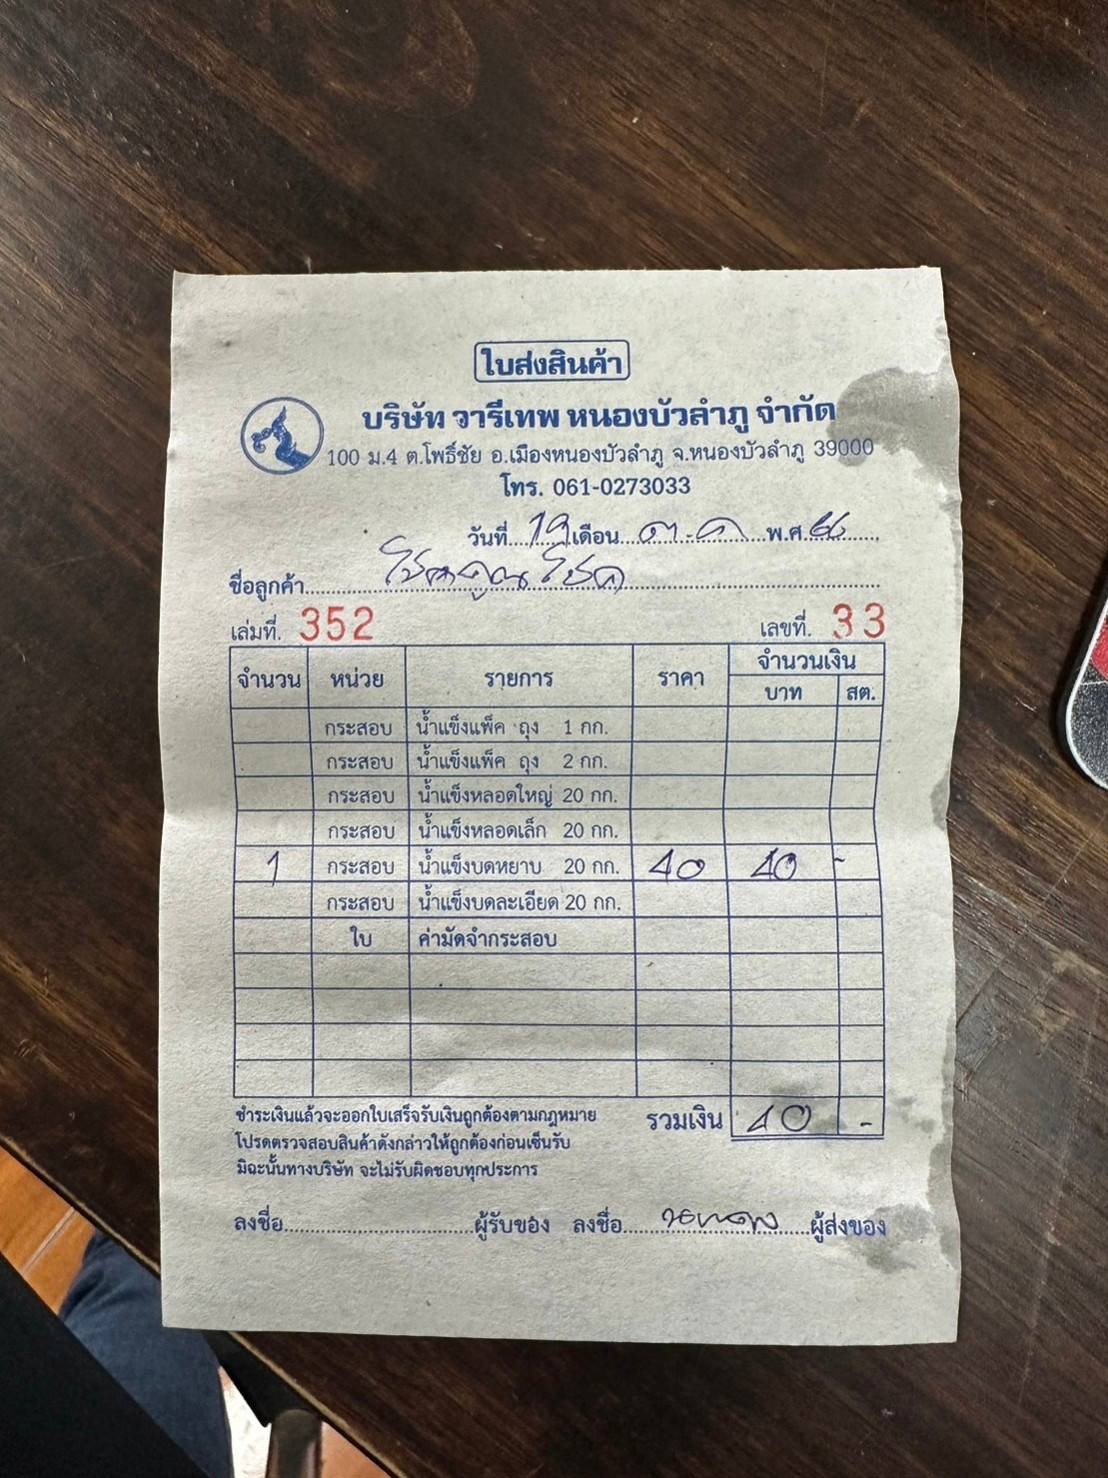 ใบส่งสินค้า
บริษัท วารีเทพ หนองบัวลำภู จำกัด
100 ม.4 ต.โพธิ์ชัย อ.เมืองหนองบัวลำภู จ.หนองบัวลำภู 39000
โทร. 061-0273033
วันที่ 19 เดือน ต.ค พ.ศ.
ชื่อลูกค้า โชคคูณโชค
เล่มที่. 352 เลขที่. 33
จำนวน หน่วย รายการ ราคา จำนวนเงิน
บาท สต.
กระสอบ น้ำแข็งแพ็ค ถุง 1 กก.
กระสอบ น้ำแข็งแพ็ค ถุง 2 กก.
กระสอบ น้ำแข็งหลอดใหญ่ 20 กก.
กระสอบ น้ำแข็งหลอดเล็ก 20 กก.
1 กระสอบ น้ำแข็งบดหยาบ 20 กก. 40 40 -
กระสอบ น้ำแข็งบดละเอียด 20 กก.
ใบ ค่ามัดจำกระสอบ
ชำระเงินแล้วจะออกใบเสร็จรับเงินถูกต้องตามกฎหมาย รวมเงิน 40 -
โปรดตรวจสอบสินค้าดังกล่าวให้ถูกต้องก่อนเซ็นรับ
มิฉะนั้นทางบริษัท จะไม่รับผิดชอบทุกประการ
ลงชื่อ ผู้รับของ ลงชื่อ ผู้ส่งของ